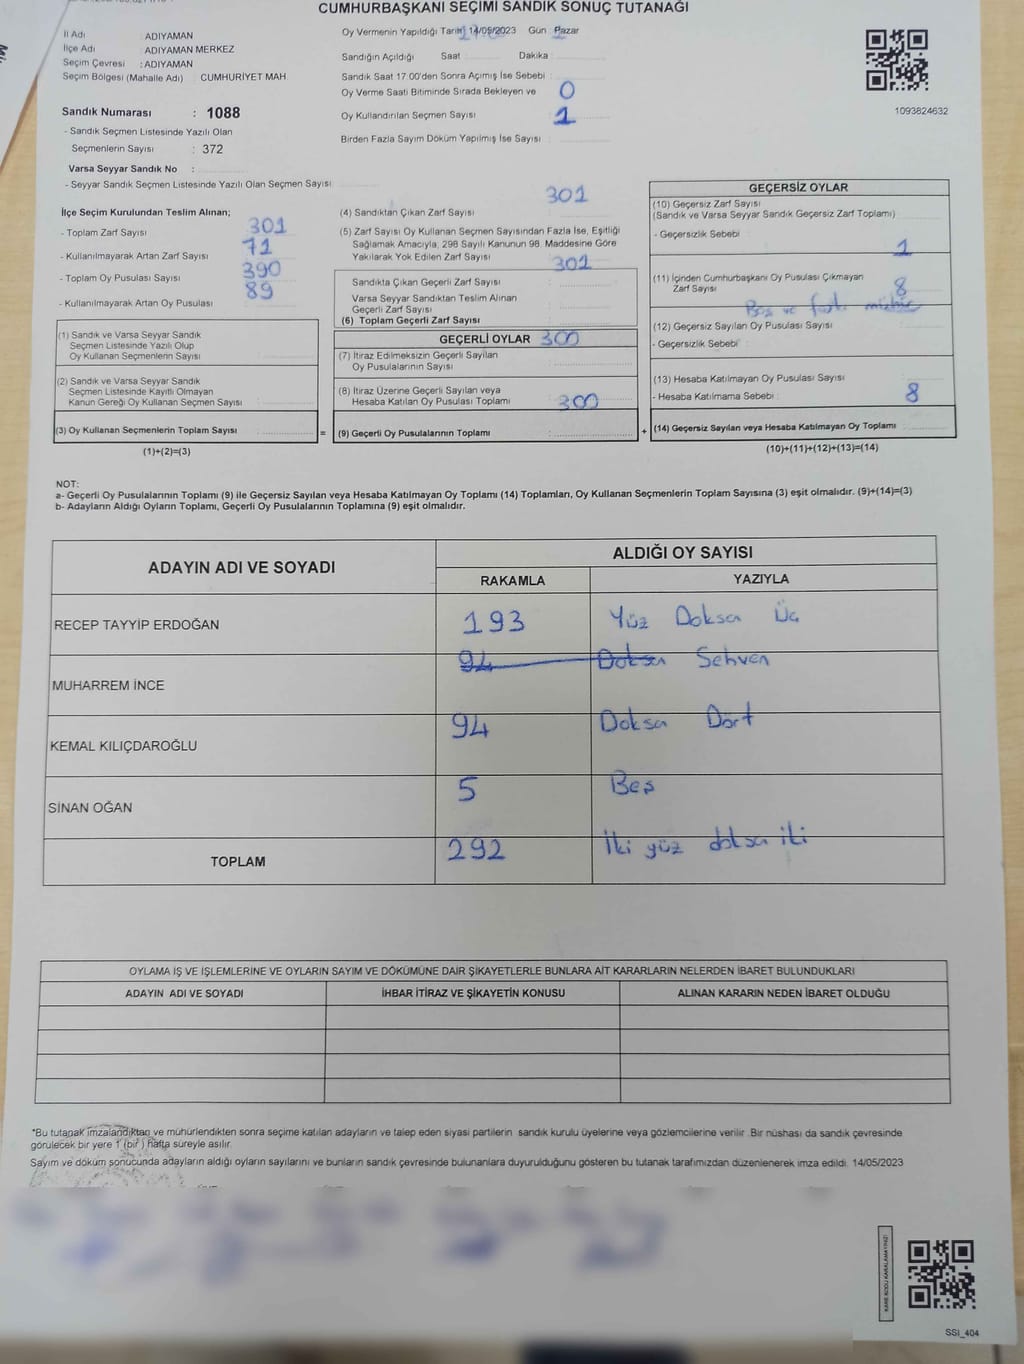 CUMHURBAŞKANI SEÇİMİ SANDIK SONUÇ TUTANAĞI
İl Adı : ADIYAMAN
İlçe Adı : ADIYAMAN MERKEZ
Seçim Çevresi : ADIYAMAN
Seçim Bölgesi (Mahalle Adı) CUMHURİYET MAH
Sandık Numarası : 1088
- Sandık Seçmen Listesinde Yazılı Olan
Seçmenlerin Sayısı : 372
Varsa Seyyar Sandık No :
- Seyyar Sandık Seçmen Listesinde Yazılı Olan Seçmen Sayısı
Oy Vermenin Yapıldığı Tarih 14/05/2023 Gün : Pazar
Sandığın Açıldığı Saat Dakika
Sandık Saat 17:00'den Sonra Açımış İse Sebebi :
Oy Verme Saati Bitiminde Sırada Bekleyen ve 0
Oy Kullandırılan Seçmen Sayısı : 1
Birden Fazla Sayım Döküm Yapılmış İse Sayısı :
1093824632
İlçe Seçim Kurulundan Teslim Alınan;
- Toplam Zarf Sayısı 301
- Kullanılmayarak Artan Zarf Sayısı : 71
- Toplam Oy Pusulası Sayısı 390
- Kullanılmayarak Artan Oy Pusulası 89
(1) Sandık ve Varsa Seyyar Sandık
Seçmen Listesinde Yazılı Olup
Oy Kullanan Seçmenlerin Sayısı :
(2) Sandık ve Varsa Seyyar Sandık
Seçmen Listesinde Kayıtlı Olmayan
Kanun Gereği Oy Kullanan Seçmen Sayısı :
(3) Oy Kullanan Seçmenlerin Toplam Sayısı : =
(1)+(2)=(3)
301
(4) Sandıktan Çıkan Zarf Sayısı :
(5) Zarf Sayısı Oy Kullanan Seçmen Sayısından Fazla İse, Eşitliği
Sağlamak Amacıyla, 298 Sayılı Kanunun 98. Maddesine Göre
Yakılarak Yok Edilen Zarf Sayısı : 301
Sandıkta Çıkan Geçerli Zarf Sayısı :
Varsa Seyyar Sandıktan Teslim Alınan
Geçerli Zarf Sayısı
(6) Toplam Geçerli Zarf Sayısı :
GEÇERLİ OYLAR 300
(7) İtiraz Edilmeksizin Geçerli Sayılan
Oy Pusulalarının Sayısı :
(8) İtiraz Üzerine Geçerli Sayılan veya
Hesaba Katılan Oy Pusulası Toplamı : 300
(9) Geçerli Oy Pusulalarının Toplamı : +
GEÇERSİZ OYLAR
(10) Geçersiz Zarf Sayısı
(Sandık ve Varsa Seyyar Sandık Geçersiz Zarf Toplamı)
- Geçersizlik Sebebi : 1
(11) İçinden Cumhurbaşkanı Oy Pusulası Çıkmayan
Zarf Sayısı 8
Boş ve fazla mühür
(12) Geçersiz Sayılan Oy Pusulası Sayısı
- Geçersizlik Sebebi :
(13) Hesaba Katılmayan Oy Pusulası Sayısı :
- Hesaba Katılmama Sebebi : 8
(14) Geçersiz Sayılan veya Hesaba Katılmayan Oy Toplamı
(10)+(11)+(12)+(13)=(14)
NOT:
a- Geçerli Oy Pusulalarının Toplamı (9) ile Geçersiz Sayılan veya Hesaba Katılmayan Oy Toplamı (14) Toplamları, Oy Kullanan Seçmenlerin Toplam Sayısına (3) eşit olmalıdır. (9)+(14)=(3)
b- Adayların Aldığı Oyların Toplamı, Geçerli Oy Pusulalarının Toplamına (9) eşit olmalıdır.
ADAYIN ADI VE SOYADI ALDIĞI OY SAYISI
RAKAMLA YAZIYLA
RECEP TAYYİP ERDOĞAN 193 Yüz Doksan Üç
MUHARREM İNCE 94 Doksan Sehven
KEMAL KILIÇDAROĞLU 94 Doksan Dört
SİNAN OĞAN 5 Beş
TOPLAM 292 İki yüz doksan iki
OYLAMA İŞ VE İŞLEMLERİNE VE OYLARIN SAYIM VE DÖKÜMÜNE DAİR ŞİKAYETLERLE BUNLARA AİT KARARLARIN NELERDEN İBARET BULUNDUKLARI
ADAYIN ADI VE SOYADI İHBAR İTİRAZ VE ŞİKAYETİN KONUSU ALINAN KARARIN NEDEN İBARET OLDUĞU
*Bu tutanak imzalandıktan ve mühürlendikten sonra seçime katılan adayların ve talep eden siyasi partilerin sandık kurulu üyelerine veya gözlemcilerine verilir. Bir nüshası da sandık çevresinde
görülecek bir yere 1 (bir) hafta süreyle asılır.
Sayım ve döküm sonucunda adayların aldığı oyların sayılarını ve bunların sandık çevresinde bulunanlara duyurulduğunu gösteren bu tutanak tarafımızdan düzenlenerek imza edildi. 14/05/2023
KARE KODU KARALAMAYINIZ!
SSI_404